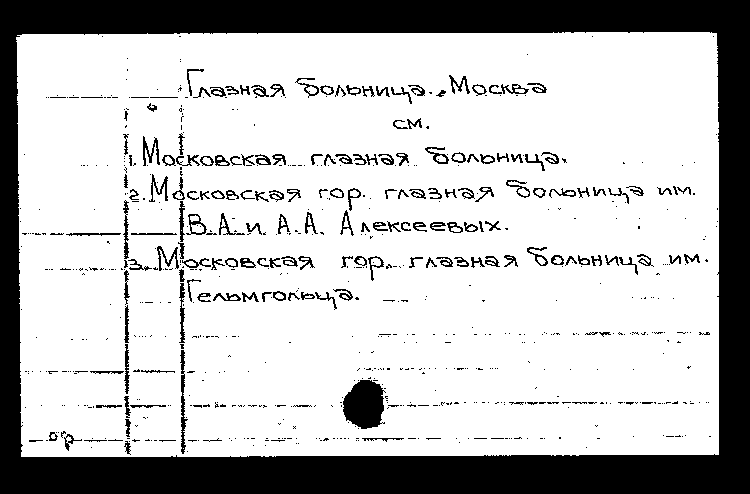 Глазная больница. Москва
см.
1. Московская глазная больница.
2. Московская гор. глазная больница им.
В.А. и А.А. Алексеевых.
3. Московская гор. глазная больница им.
Гельмгольца.